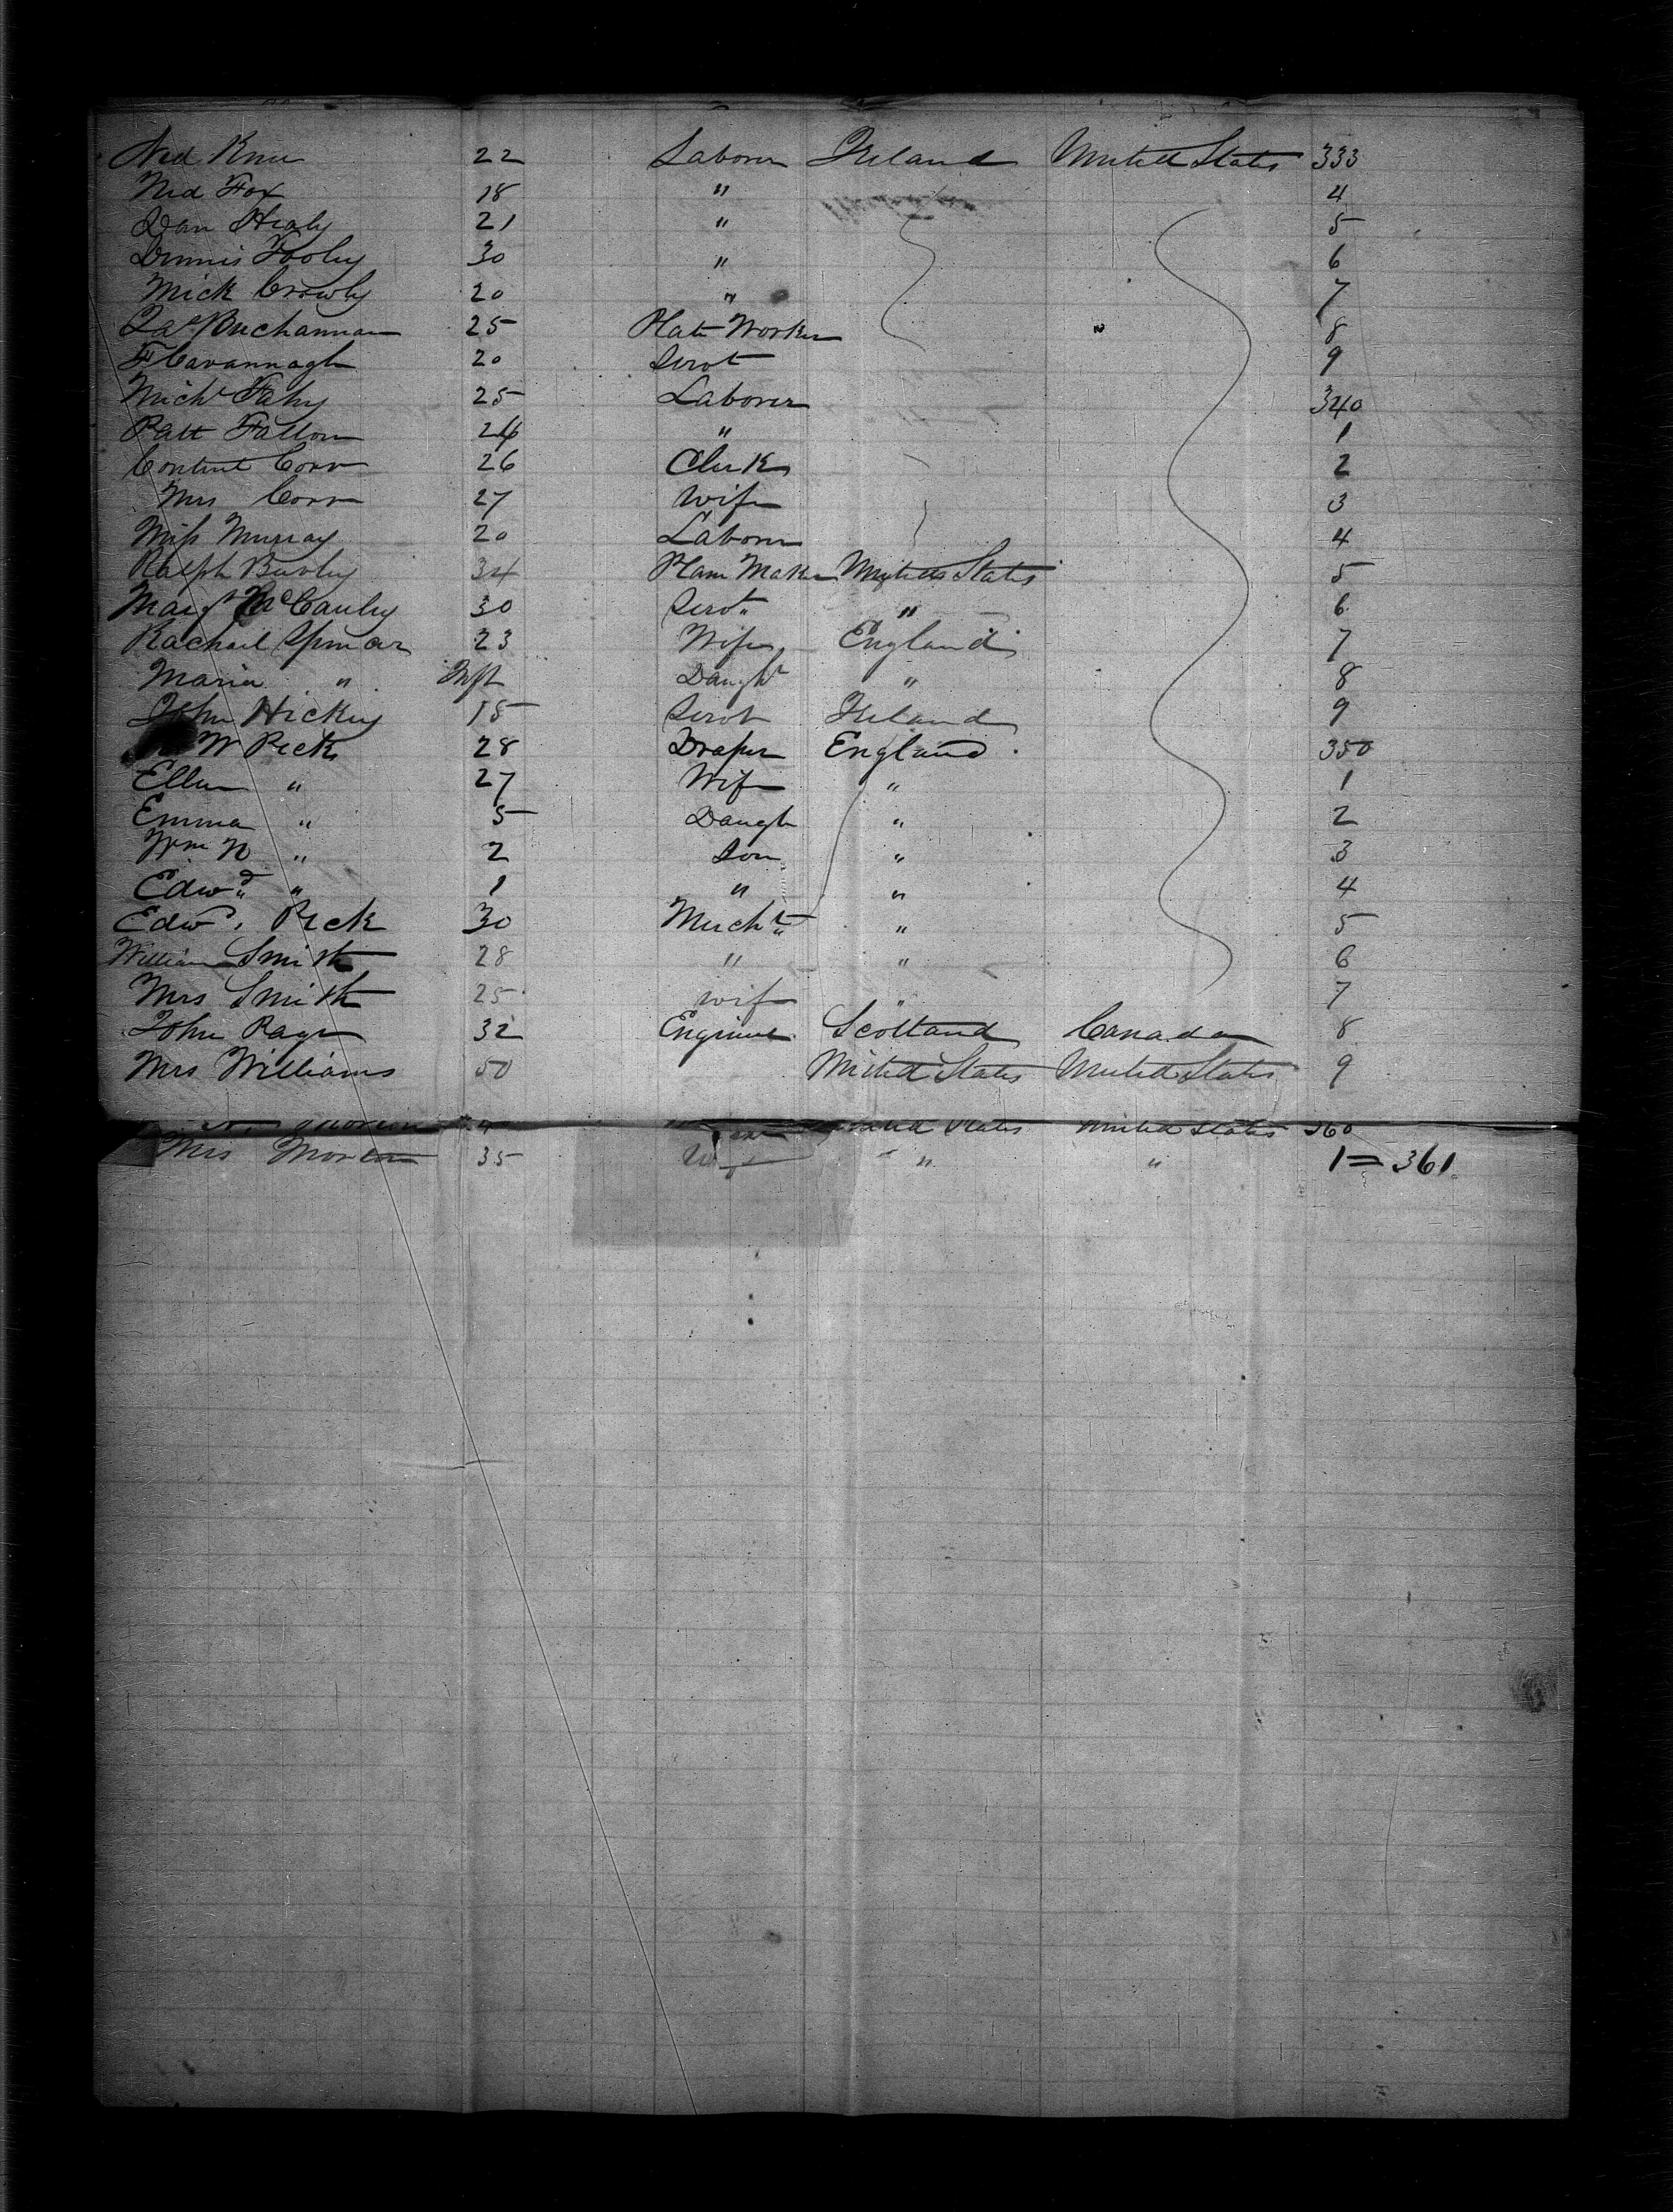 Ned Knee 22 Laborer Ireland United States 333
Ned Fox 18 " 4
Dan Healy 21 " 5
Dennis Fooley 30 " 6
Mick Crowly 20 " 7
Jas Buchannan 25 Plate Worker " 8
F Cavannagh 20 Servt 9
Michl Fahy 25 Laborer 340
Patt Fallon 24 " 1
Content Corr 26 Clerk 2
Mrs Corr 27 Wife 3
Miss Murray 20 Laborer 4
Ralph 34 Maker United States 5
Margt McCauley 30 Servt " 6
Rachael Spencer 23 Wife England 7
Maria " Inft Daught " 8
John Hickey 18 Servt Ireland 9
W Peck 28 Draper England 350
Ellen " 27 Wife " 1
Emma " 5 Daugh " 2
Wm N " 2 Son " 3
Edwd " 1 " " 4
Edwd Peck 30 Mercht " 5
William Smith 28 " " 6
Mrs Smith 25 wife " 7
John Page 32 Engineer Scotland Canada 8
Mrs Williams 50 United States United States 9
States United States 360
Mrs Morton 35 Wife " " 1 = 361